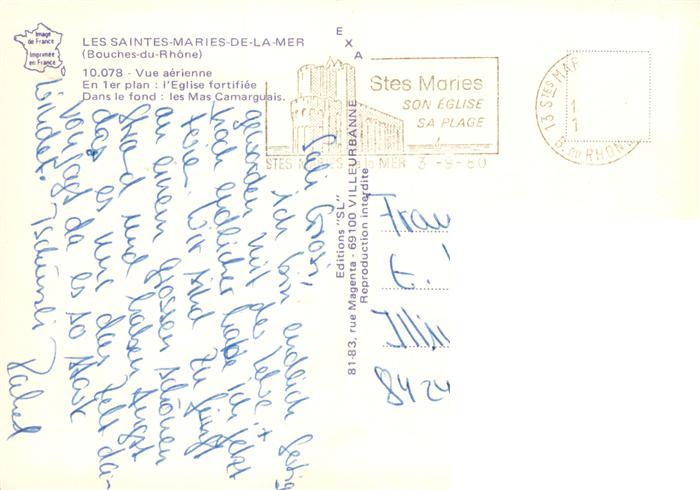 Image
de France
Imprimée
en France
LES SAINTES-MARIES-DE-LA-MER
(Bouches-du-Rhône)
10.078 - Vue aérienne
En 1er plan : l'Eglise fortifiée
Dans le fond : les Mas Camarguais.
EXA
Stes Maries
SON ÉGLISE
SA PLAGE
STES MARIES de la MER 3-9-80
13 STES MAR
1
1
B. DU RHONE
Editions "SL"
81-83, rue Magenta - 69100 VILLEURBANNE
Reproduction interdite
Liebi Grosi,
ich bin endlich fertig
geworden mit der Lehre +
noch endlicher habe ich jetzt
Ferien. Wir sind zu fünft
an einem grossen schönen
Strand und haben Angst
dass es nur das Zelt dai-
vonjagt da es so stark
windet. Tschüssli
Frau
E.
Illn
8424